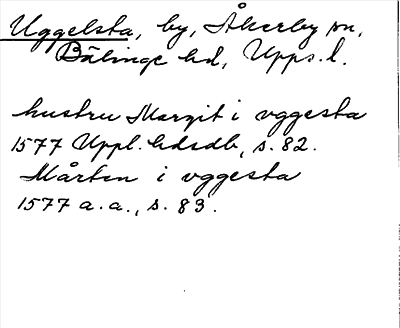 Uggelsta, by, Åkerby sn,
Bälinge hd, Upps. l.
hustru Margit i vggesta
1577 Uppl. hdsdb, s. 82.
Mårten i vggesta
1577 a. a., s. 83.